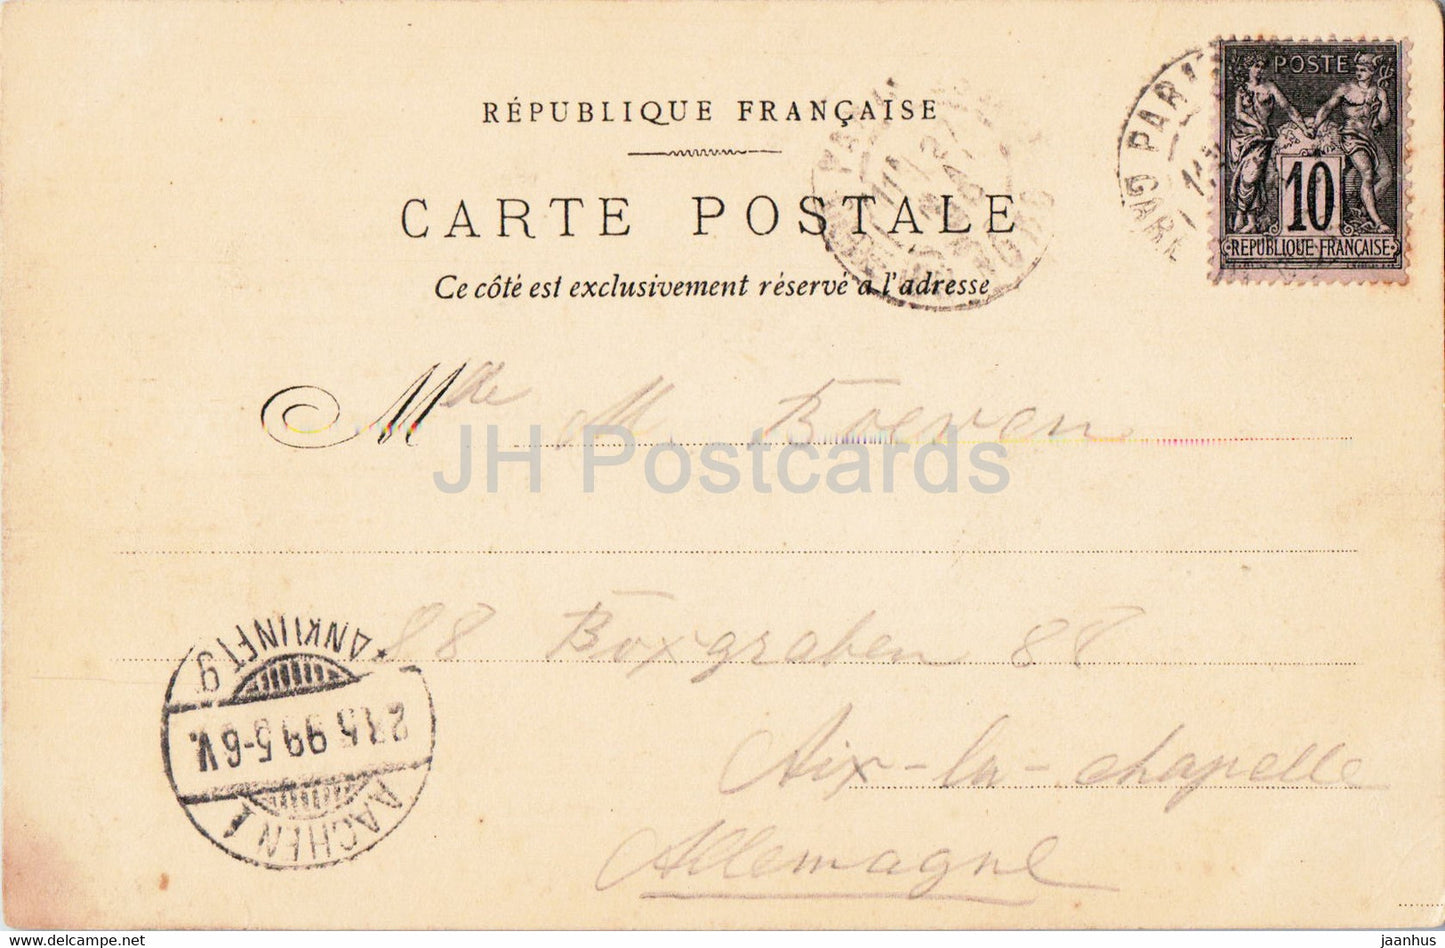 RÉPUBLIQUE FRANÇAISE
CARTE POSTALE
Ce côté est exclusivement réservé a l'adresse
POSTE
10
REPUBLIQUE FRANÇAISE
PARI
GARE
Mlle M. Boeven
JH Postcards
88 Boxgraben 88
Aix-la-chapelle
Allemagne
AACHEN 1
5.99 5-6 V.
* ANKUNFT g.
delcampe.net
jaanhus